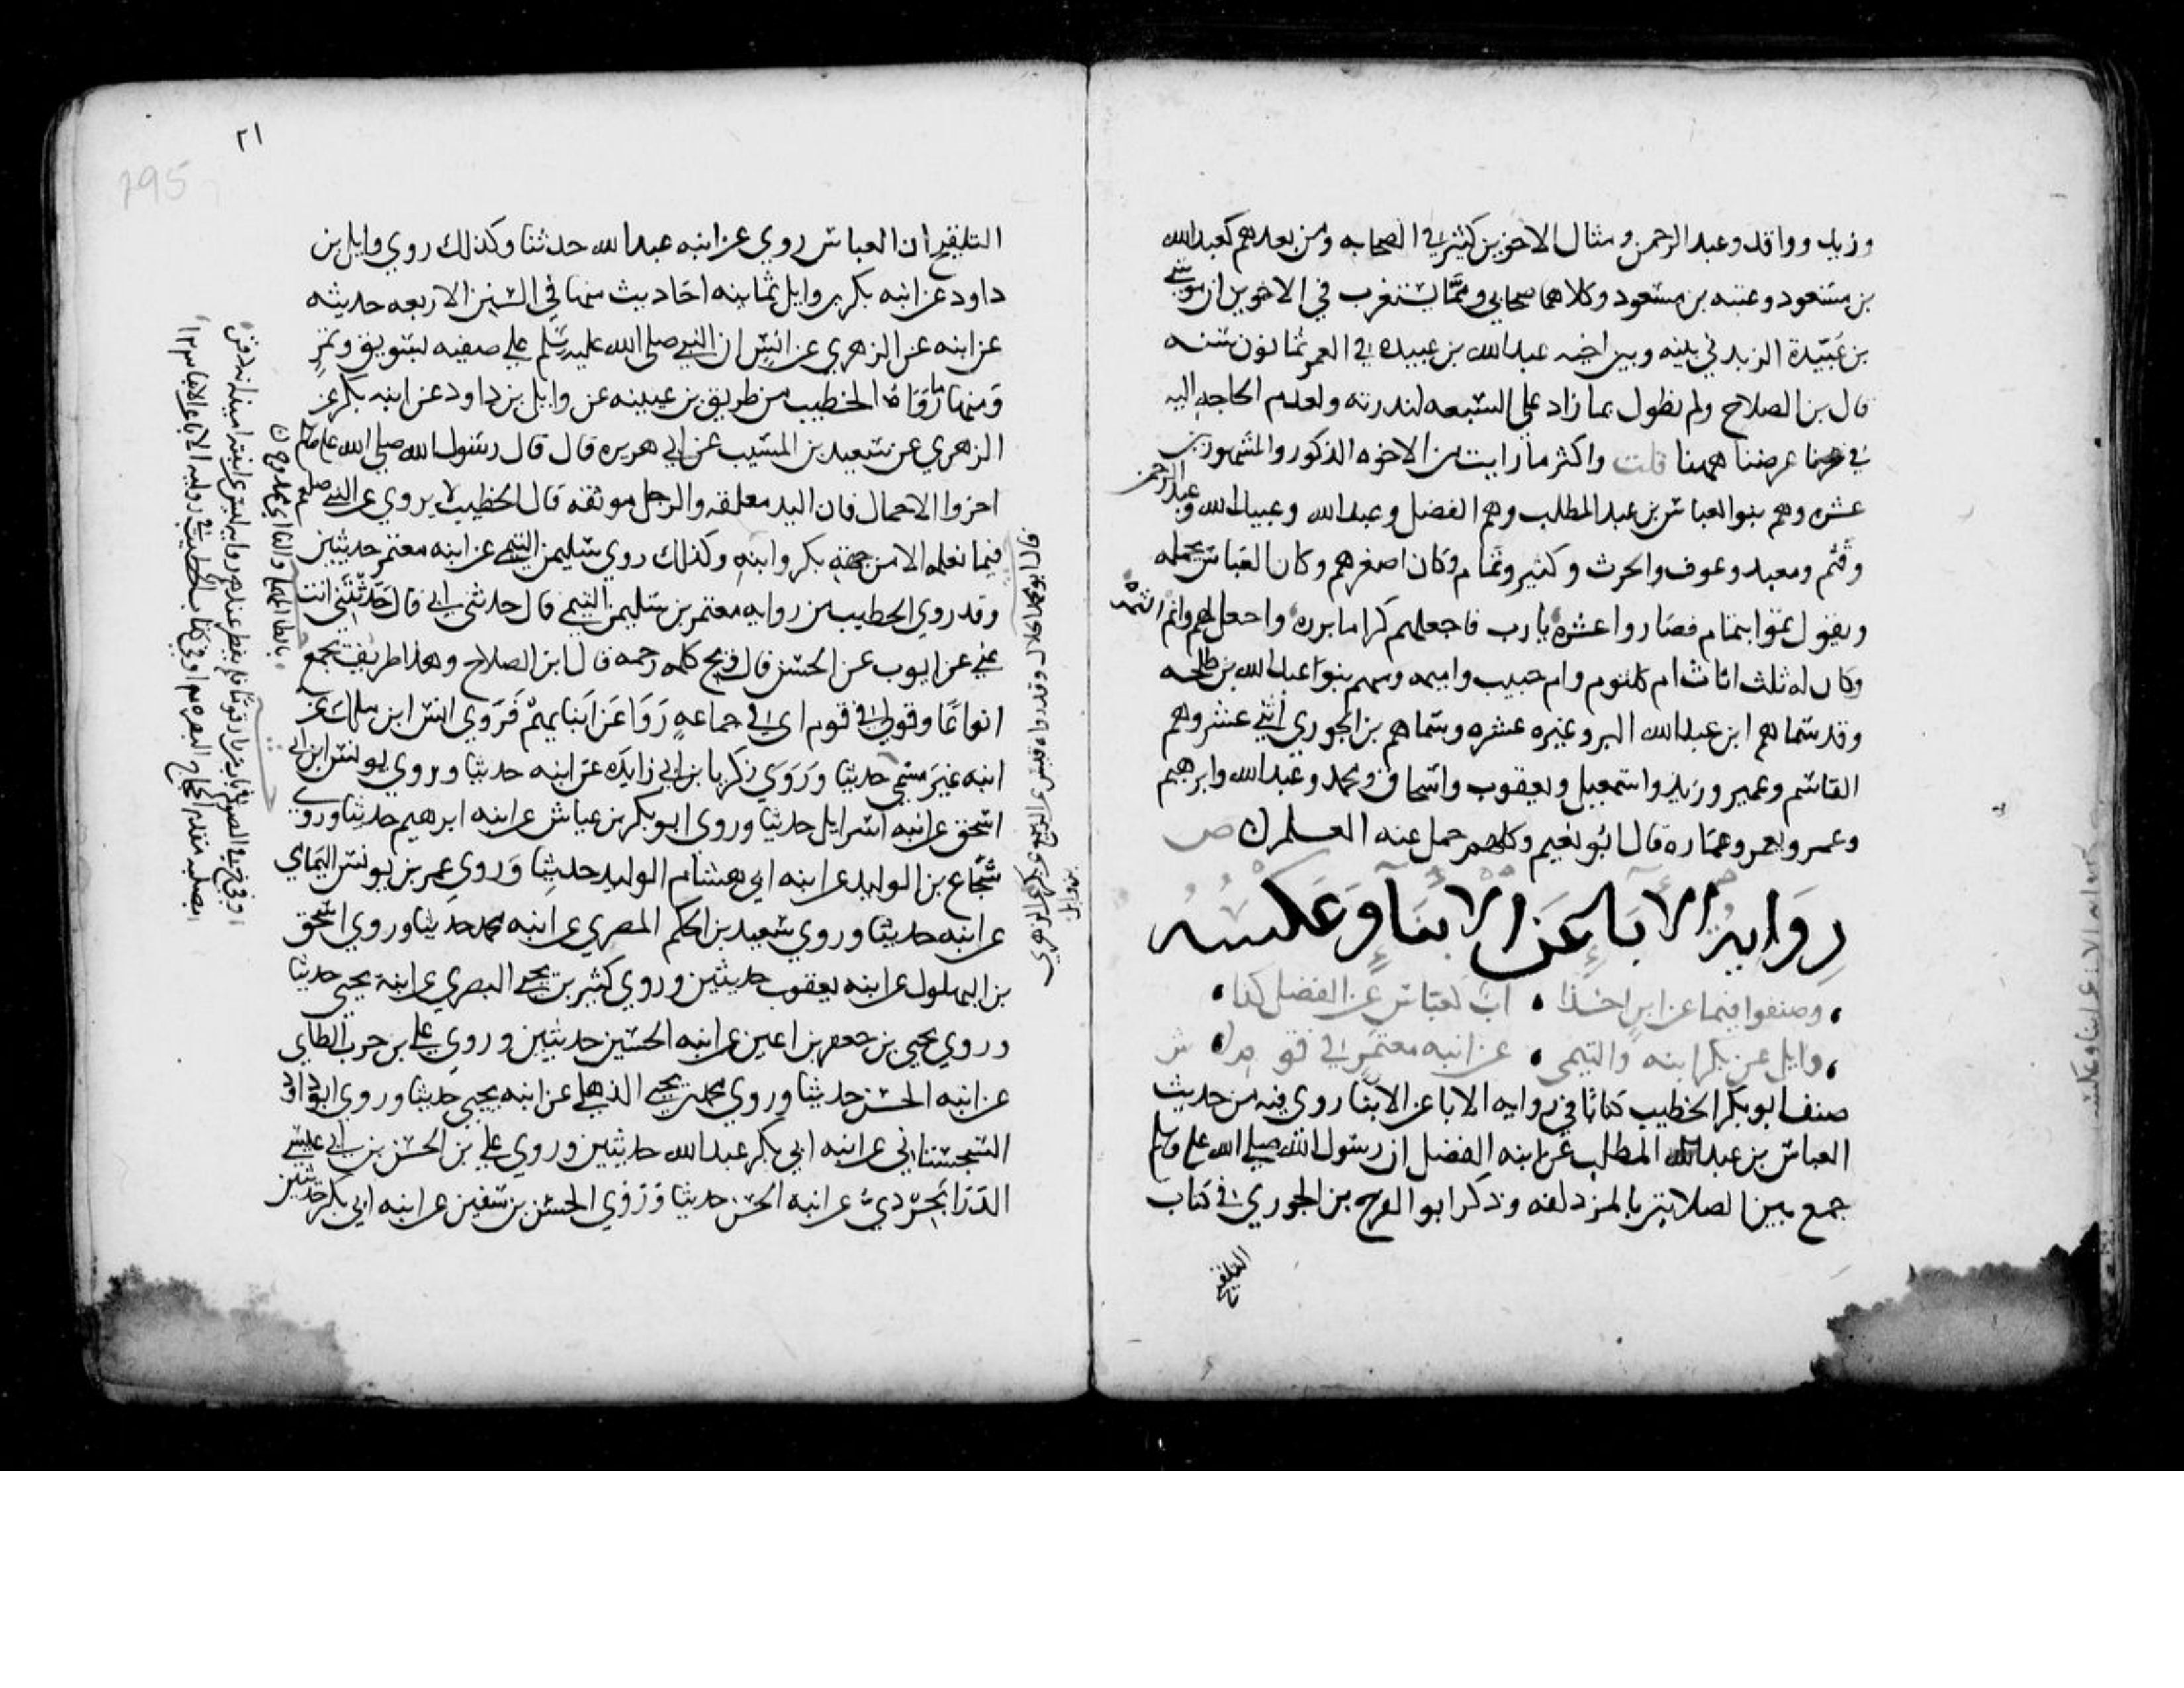 وزيد وواقد وعبد الرحمن ومثال الاخوين كثير في الصحابه ومن بعدهم كعبد الله
بن مسعود وعتبه بن مسعود وكلاهما صحابي ومما يستغرب في الاخوين ان موسى
بن عبيدة الربذي بينه وبين اخيه عبد الله بن عبيده في العمر ثمانون سنه
قال بن الصلاح ولم نطول بما زاد على السبعه لندرته ولعدم الحاجه اليه
في غرضنا ههنا قلت واكثر ما رايت من الاخوه الذكور والمشهورين
عشره وهم بنو العباس بن عبد المطلب وهم الفضل وعبد الله وعبيد الله وعبد الرحمن
وقثم ومعبد وعوف والحرث وكثير وتمام وكان اصغرهم وكان العباس يحمله
ويقول تموا بتمام فصاروا عشره يارب فاجعلهم كراما برره واجعل لهم وانم الثمره
وكان له ثلث اناث ام كلثوم وام حبيب واميمه ومنهم بنوا عبد الله بن طلحه
وقد سماهم ابن عبد الله البر وغيره عشره وسماهم بن الجوزي اثني عشر وهم
القاسم وعمير وزيد واسمعيل ويعقوب واسحاق ومحمد وعبد الله وابرهيم
وعمر ويعمر وعماره قال ابو نعيم وكلهم حمل عنه العلم ص
رواية الابا عن الابنا وعكسه
وصنفوا فيما عن ابن اخذا اب كعباس عن الفضل كذا
وايل عن بكر ابنه والتيمي عن ابنه معتمر في قوم ش
صنف ابو بكر الخطيب كتابا في روايه الابا عن الابنا روى فيه من حديث
العباس بن عبد المطلب عن ابنه الفضل ان رسول الله صلى الله عليه وسلم
جمع بين الصلاتين بالمزدلفه وذكر ابو الفرج بن الجوزي في كتاب
التلقيح
٢١
295
التلقيح ان العباس روى عن ابنه عبد الله حديثا وكذلك روى وايل بن
داود عن ابنه بكر بن وايل ثمانيه احاديث منها في السنن الاربعه حديثه
عن ابنه عن الزهري عن انس ان النبي صلى الله عليه وسلم اولم على صفيه بسويق وتمر
ومنها ما رواه الخطيب من طريق بن عيينه عن وايل بن داود عن ابنه بكر عن
الزهري عن سعيد بن المسيب عن ابي هريره قال قال رسول الله صلى الله عليه وسلم
اخروا الاحمال فان اليد معلقه والرجل موثقه قال الخطيب لا يروى عن النبي صلعم
فيما نعلمه الا من جهة بكر وابيه وكذلك روى سليمن التيمي عن ابنه معتمر حديثين
وقد روى الخطيب من روايه معتمر بن سليمن التيمي قال حدثني ابي قال حدثتني انت
عني عن ايوب عن الحسن قال ويح كلمه رحمه قال ابن الصلاح وهذا طريف يجمع
انواعا وقولي في قوم اي في جماعه رووا عن ابنايهم فروى انس ابن ملك عن
ابنه غير مسمى حديثا وروى زكريا بن ابي زايده عن ابنه حديثا وروى يونس ابن ابي
اسحق عن ابنه اسرايل حديثا وروى ابو بكر بن عياش عن ابنه ابرهيم حديثا وروى
شجاع بن الوليد عن ابنه ابي هشام الوليد حديثا وروى عمر بن يونس اليمامي
عن ابنه حديثا وروى سعيد بن الحكم المصري عن ابنه محمد حديثا وروى اسحق
بن البهلول عن ابنه يعقوب حديثين وروى كثير بن يحيى البصري عن ابنه يحيى حديثا
وروى يحيى بن جعفر بن اعين عن ابنه الحسين حديثين وروى علي بن حرب الطاي
عن ابنه الحسن حديثا وروى محمد بن يحيى الذهلي عن ابنه يحيى حديثا وروى ابو داود
السجستاني عن ابنه ابي بكر عبد الله حديثين وروى علي بن الحسن بن ابي عيسى
الدرابجردي عن ابنه الحسن حديثا وروى الحسن بن سفين عن ابنه ابي بكر حديثين